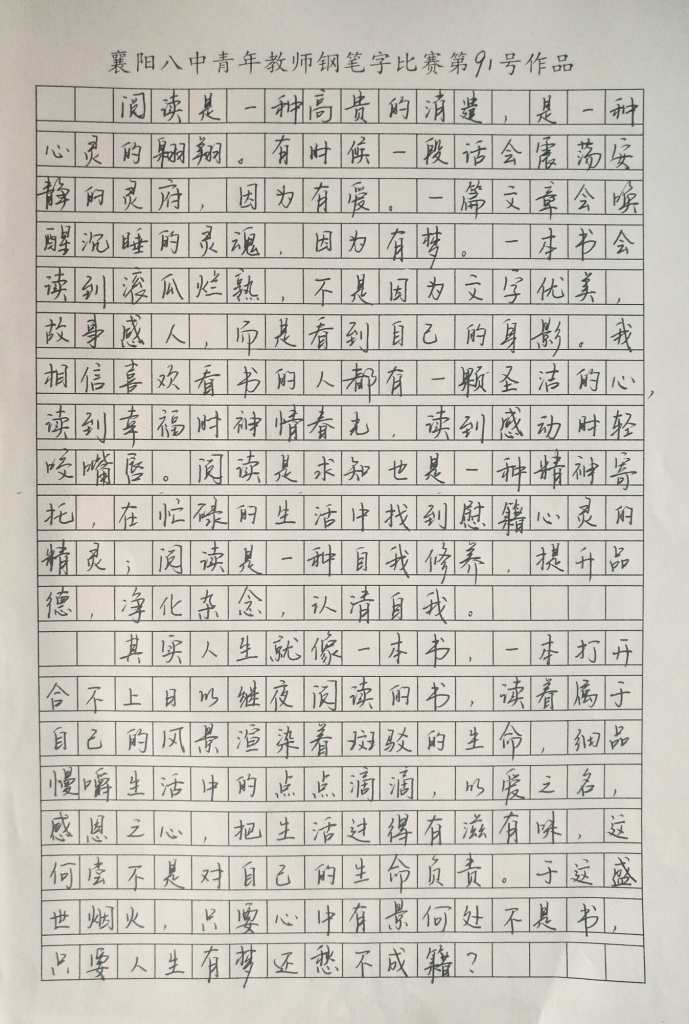 襄阳八中青年教师钢笔字比赛第91号作品
阅读是一种高贵的消遣，是一种
心灵的翱翔。有时候一段话会震荡安
静的灵府，因为有爱。一篇文章会唤
醒沉睡的灵魂，因为有梦。一本书会
读到滚瓜烂熟，不是因为文字优美，
故事感人，而是看到自己的身影。我
相信喜欢看书的人都有一颗圣洁的心，
读到幸福时神情春光，读到感动时轻
咬嘴唇。阅读是求知也是一种精神寄
托，在忙碌的生活中找到慰籍心灵的
精灵；阅读是一种自我修养，提升品
德，净化杂念，认清自我。
其实人生就像一本书，一本打开
合不上日以继夜阅读的书，读着属于
自己的风景渲染着斑驳的生命，细品
慢嚼生活中的点点滴滴，以爱之名，
感恩之心，把生活过得有滋有味，这
何尝不是对自己的生命负责。于这盛
世烟火，只要心中有景何处不是书，
只要人生有梦还愁不成籍？